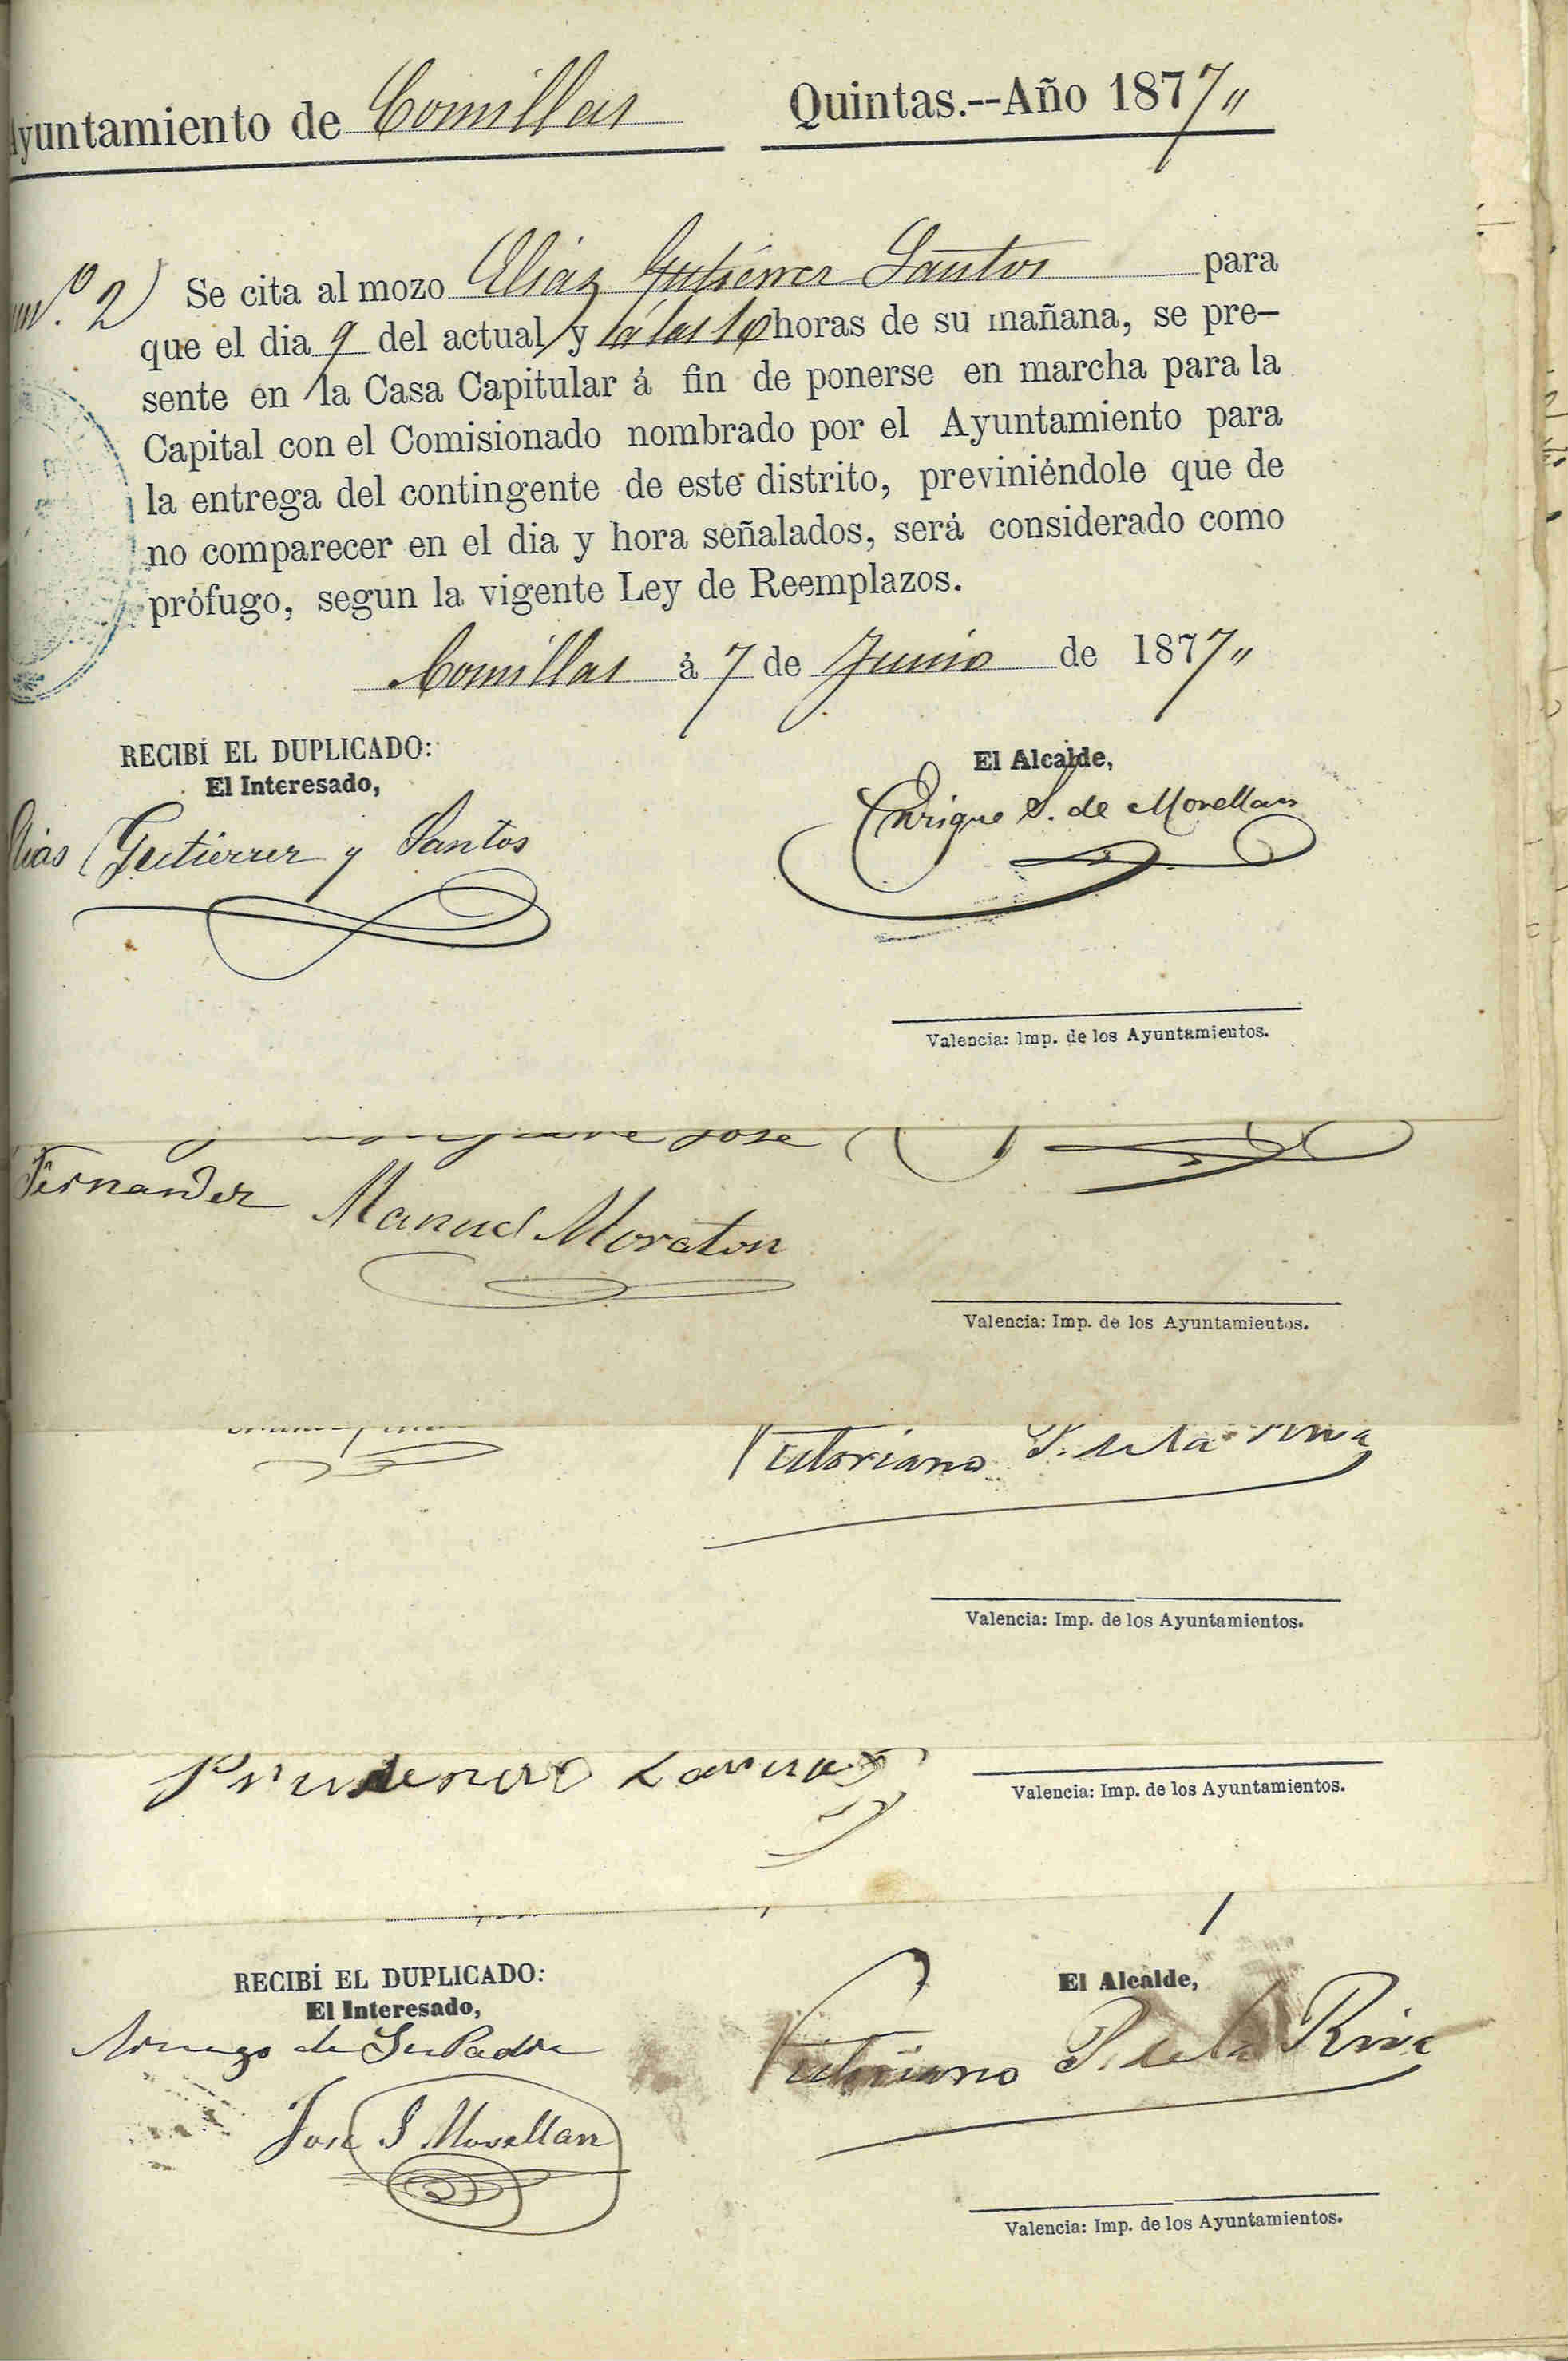 Ayuntamiento de Comillas Quintas.--Año 1877,,
num.º 2) Se cita al mozo Elias Gutierrez Santos para
que el dia 9 del actual y á las 10 horas de su mañana, se pre-
sente en la Casa Capitular á fin de ponerse en marcha para la
Capital con el Comisionado nombrado por el Ayuntamiento para
la entrega del contingente de este distrito, previniéndole que de
no comparecer en el dia y hora señalados, será considerado como
prófugo, segun la vigente Ley de Reemplazos.
Comillas á 7 de Junio de 1877,,
RECIBÍ EL DUPLICADO:
El Interesado,
Elias Gutierrez y Santos
El Alcalde,
Enrique S. de Movellan
Valencia: Imp. de los Ayuntamientos.
Jose
Fernandez Manuel Moraton
Valencia: Imp. de los Ayuntamientos.
Victoriano P. de la Riva
Valencia: Imp. de los Ayuntamientos.
Prudencio
Valencia: Imp. de los Ayuntamientos.
RECIBÍ EL DUPLICADO:
El Interesado,
A ruego de Su Padre
Jose S Movellan
El Alcalde,
Victoriano P. de la Riva
Valencia: Imp. de los Ayuntamientos.